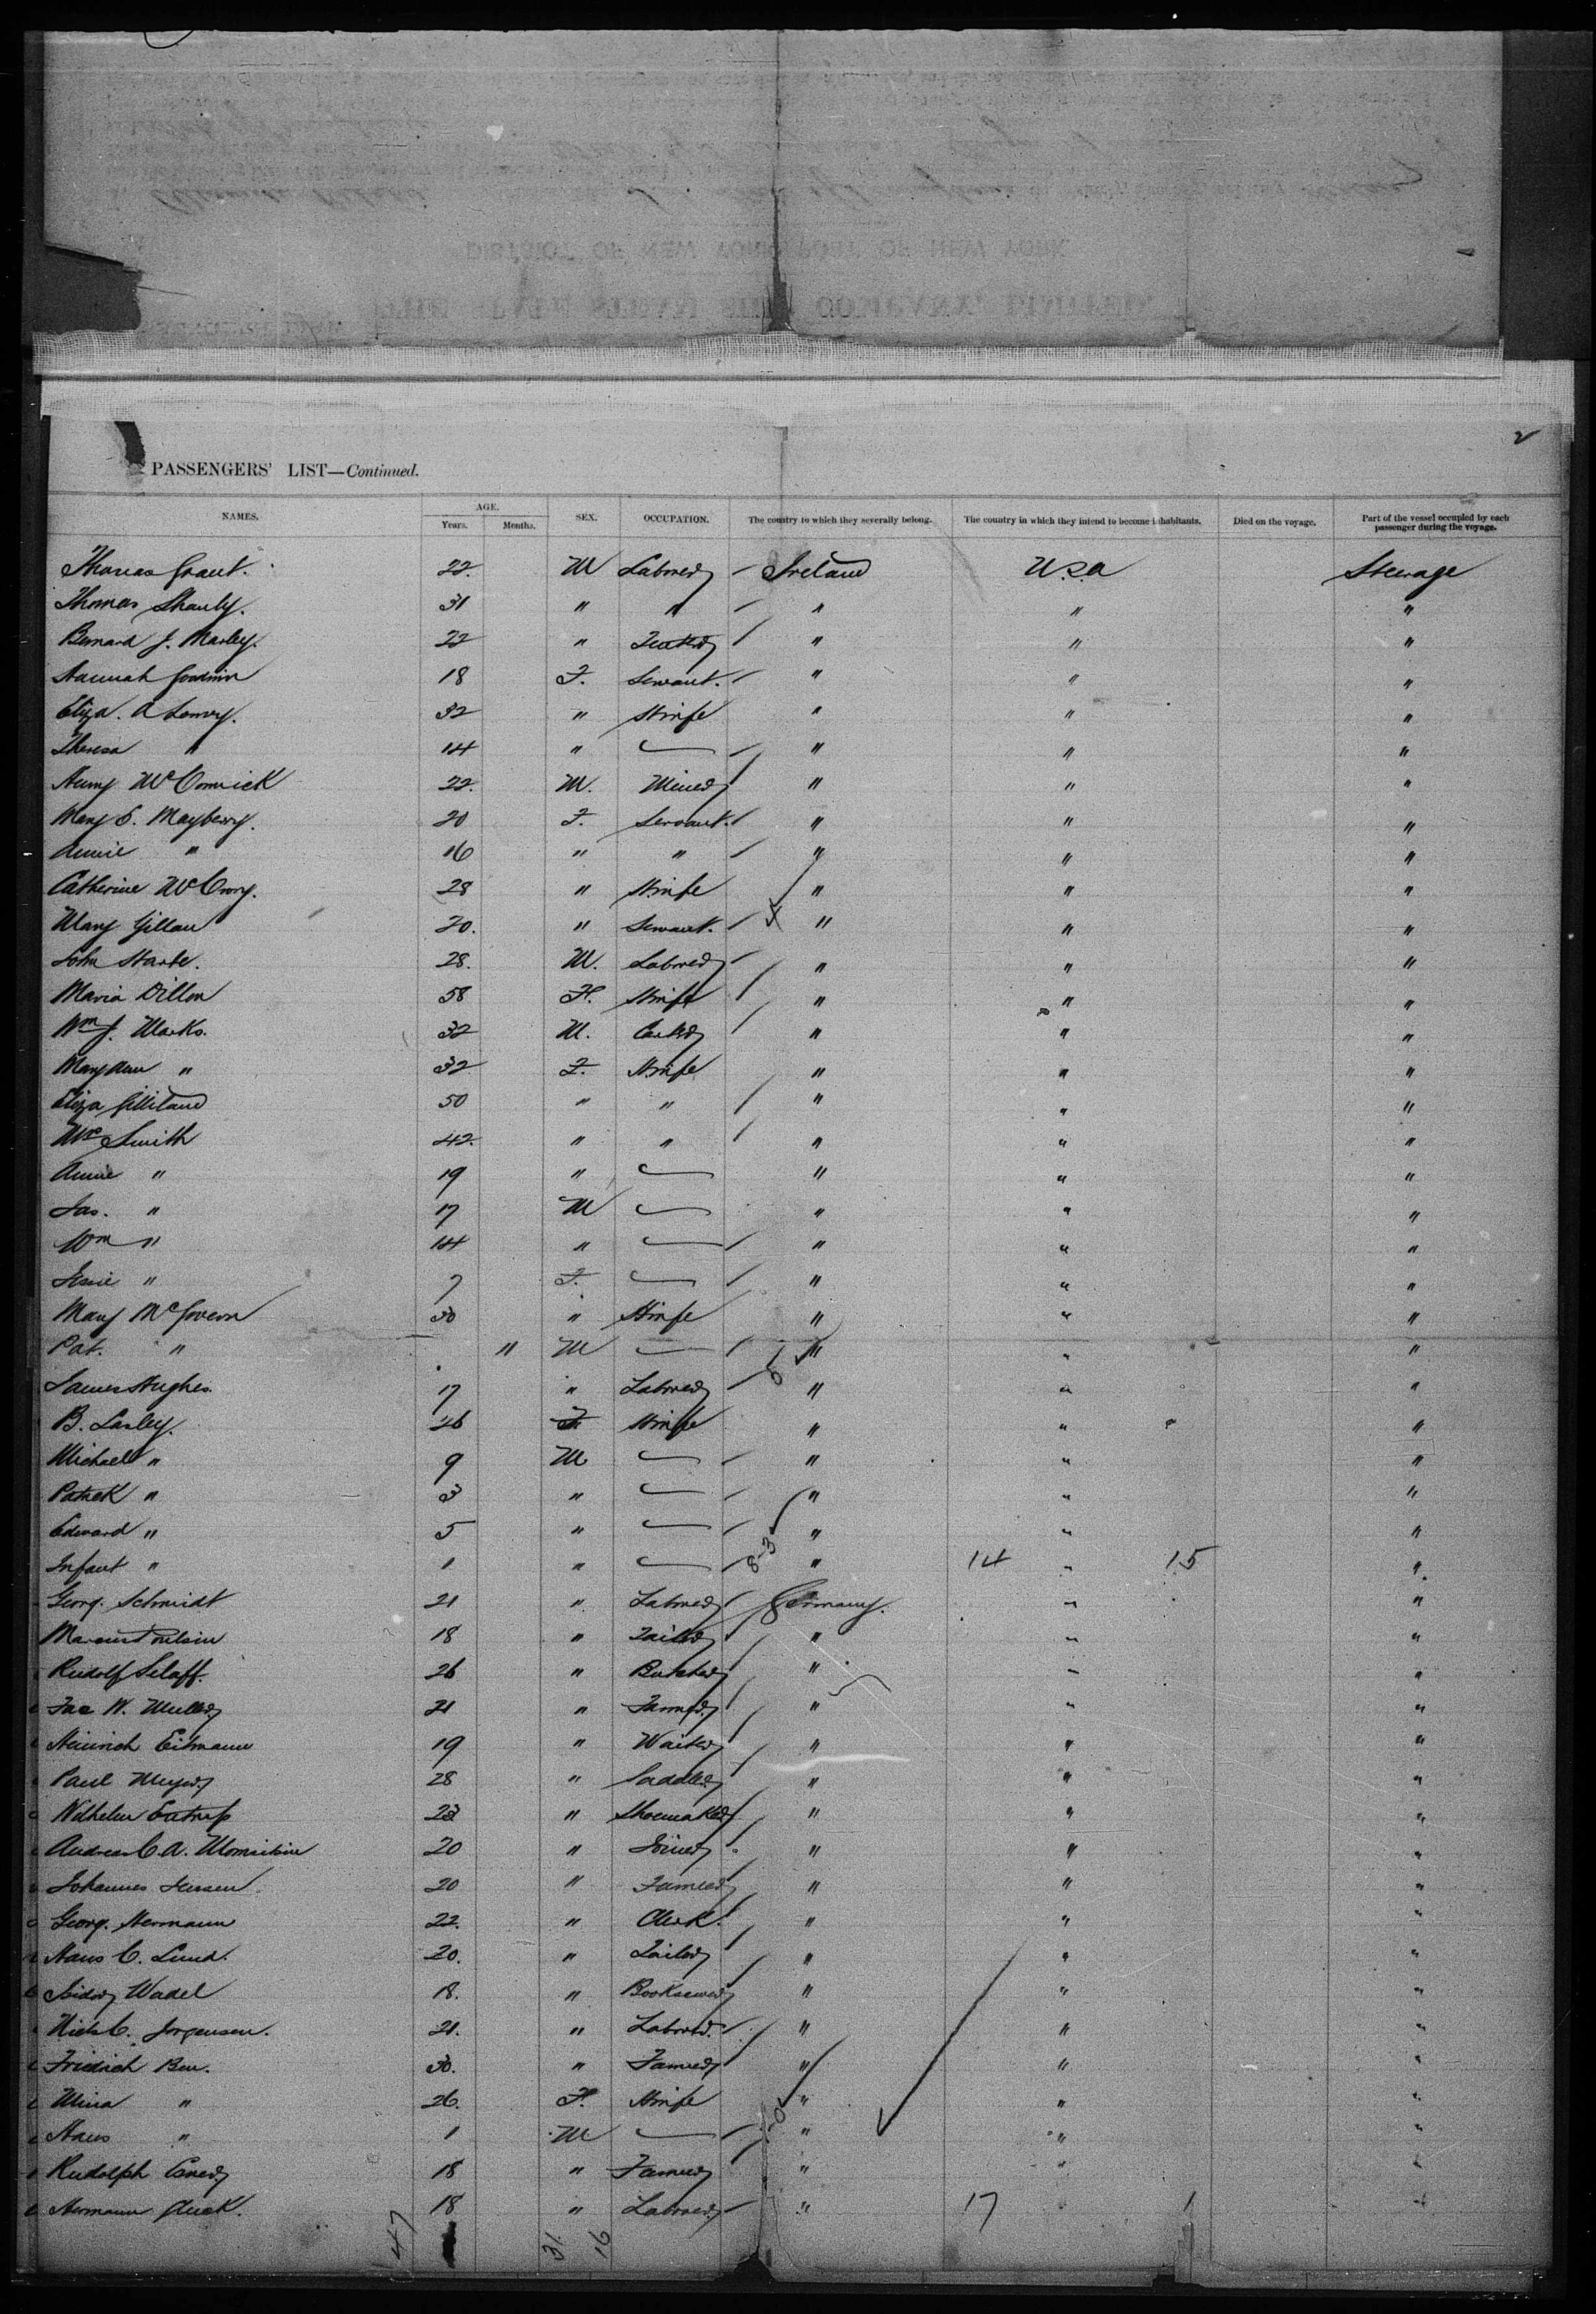 DISTRICT OF NEW YORK PORT OF NEW YORK
THE STATE STEAM SHIP COMPANY, LIMITED
2
PASSENGERS' LIST—Continued.
NAMES. AGE. Years. Months. SEX. OCCUPATION. The country to which they severally belong. The country in which they intend to become inhabitants. Died on the voyage. Part of the vessel occupied by each passenger during the voyage.
Thomas Grant. 22. M Laborer Ireland U.S.a Steerage
Thomas Shanly. 31 " " " " "
Bernard J. Marley. 22 " " " "
Hannah Goodwin 18 F. Servant. " " "
Eliza. A Lowry. 32 " Wife " " "
Theresa " 14 " — " " "
Henry McCormick 22. M. Miner " " "
Mary S. Mayberry. 20 F. Servant. " " "
Annie " 16 " " " " "
Catherine McCrory. 28 " Wife " " "
Mary Gillan 20. " Servant. " " "
John Harte. 28. M. Laborer " " "
Maria Dillon 58 F. Wife " " "
Wm J. Marks. 32 M. " " "
Mary Ann " 32 F. Wife " " "
Eliza Gilliland 50 " " " " "
Mrs Smith 42. " " " " "
Annie " 19 " — " " "
Jas. " 17 M — " " "
Wm " 14 " — " " "
Jessie " 7 F. — " " "
Mary McGovern 30 " Wife " " "
Pat. " " M — " " "
James Hughes. 17 " Laborer " " "
B. Lasley. 26 F. Wife " " "
Michael " 9 M — " " "
Patrick " 3 " — " " "
Edward " 5 " — " " "
Infant " 1 " — 8-3 " 14 " 15 "
Georg. Schmidt 21 " Laborer Germany. " "
18 " Tailor " " "
Rudolf 26 " Butcher " " "
Jac W. Muller 21 " Farmer " " "
Heinrich Eitmann 19 " Waiter " " "
Paul Meyer 28 " Saddler " " "
Wilhelm 23 " Shoemaker " " "
Andreas C. A. 20 " Joiner " " "
Johannes Jensen 20 " Farmer " " "
Georg. Hermann 22. " Clerk. " " "
Hans C. Lund. 20. " Tailor " " "
Isidor Wadel 18. " " " "
Niels C. Jorgensen. 21. " Laborer " " "
Friedrich Beu. 30. " Farmer " " "
Mina " 26. F. Wife " " "
Hans " 1 M — " " "
Rudolph 18 " Farmer " " "
Hermann Gluck. 18 " Laborer " 17 1 "
47 31 16